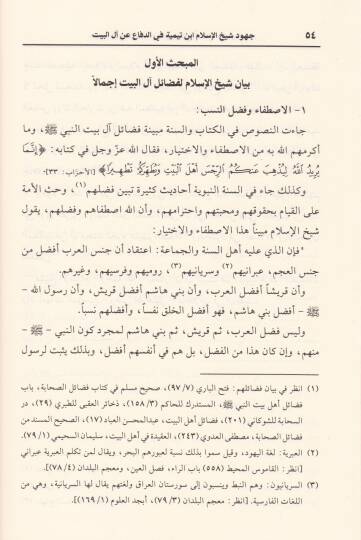 ٥٤ جهود شيخ الإسلام ابن تيمية في الدفاع عن آل البيت
المبحث الأول
بيان شيخ الإسلام لفضائل آل البيت إجمالاً
١- الاصطفاء وفضل النسب:
جاءت النصوص في الكتاب والسنة مبينة فضائل آل بيت النبي ﷺ، وما
أكرمهم الله به من الاصطفاء والاختيار، فقال الله عزّ وجل في كتابه: ﴿إِنَّمَا
يُرِيدُ اللَّهُ لِيُذْهِبَ عَنكُمُ الرِّجْسَ أَهْلَ الْبَيْتِ وَيُطَهِّرَكُمْ تَطْهِيرًا﴾ [الأحزاب: ٣٣].
وكذلك جاء في السنة النبوية أحاديث كثيرة تبين فضلهم(١)، وحث الأمة
على القيام بحقوقهم ومحبتهم واحترامهم، وأن الله اصطفاهم وفضلهم، يقول
شيخ الإسلام مبيناً هذا الاصطفاء والاختيار:
"فإن الذي عليه أهل السنة والجماعة: اعتقاد أن جنس العرب أفضل من
جنس العجم، عبرانيهم(٢) وسريانيهم(٣)، روميهم وفرسيهم، وغيرهم.
وأن قريشاً أفضل العرب، وأن بني هاشم أفضل قريش، وأن رسول الله -
ﷺ - أفضل بني هاشم، فهو أفضل الخلق نفساً، وأفضلهم نسباً.
وليس فضل العرب، ثم قريش، ثم بني هاشم لمجرد كون النبي - ﷺ -
منهم، وإن كان هذا من الفضل، بل هم في أنفسهم أفضل، وبذلك يثبت لرسول
(١) انظر في بيان فضائلهم: فتح الباري (٩٧/٧)، صحيح مسلم في كتاب فضائل الصحابة، باب
فضائل أهل بيت النبي ﷺ، المستدرك للحاكم (١٥٨/٣)، ذخائر العقبى للطبري (٢٩)، در
السحابة للشوكاني (٢٠١)، فضائل أهل البيت، عبدالمحسن العباد (١٧)، الصحيح المسند من
فضائل الصحابة، مصطفى العدوي (٢٤٣)، العقيدة في أهل البيت، سليمان السحيمي (٧٩/١).
(٢) العبرية: لغة اليهود، وقيل سموا بذلك نسبة لعبورهم البحر، ويقال لمن تكلم العبرية عبراني
[انظر: القاموس المحيط (٥٥٨) باب الراء، فصل العين، ومعجم البلدان (٧٨/٤)].
(٣) السريانيون: وهم النبط وينسبون إلى سورستان العراق ولغتهم يقال لها السريانية، وهي من
اللغات الفارسية. [انظر: معجم البلدان (٧٩/٣)، أبجد العلوم (١٦٩/١)].